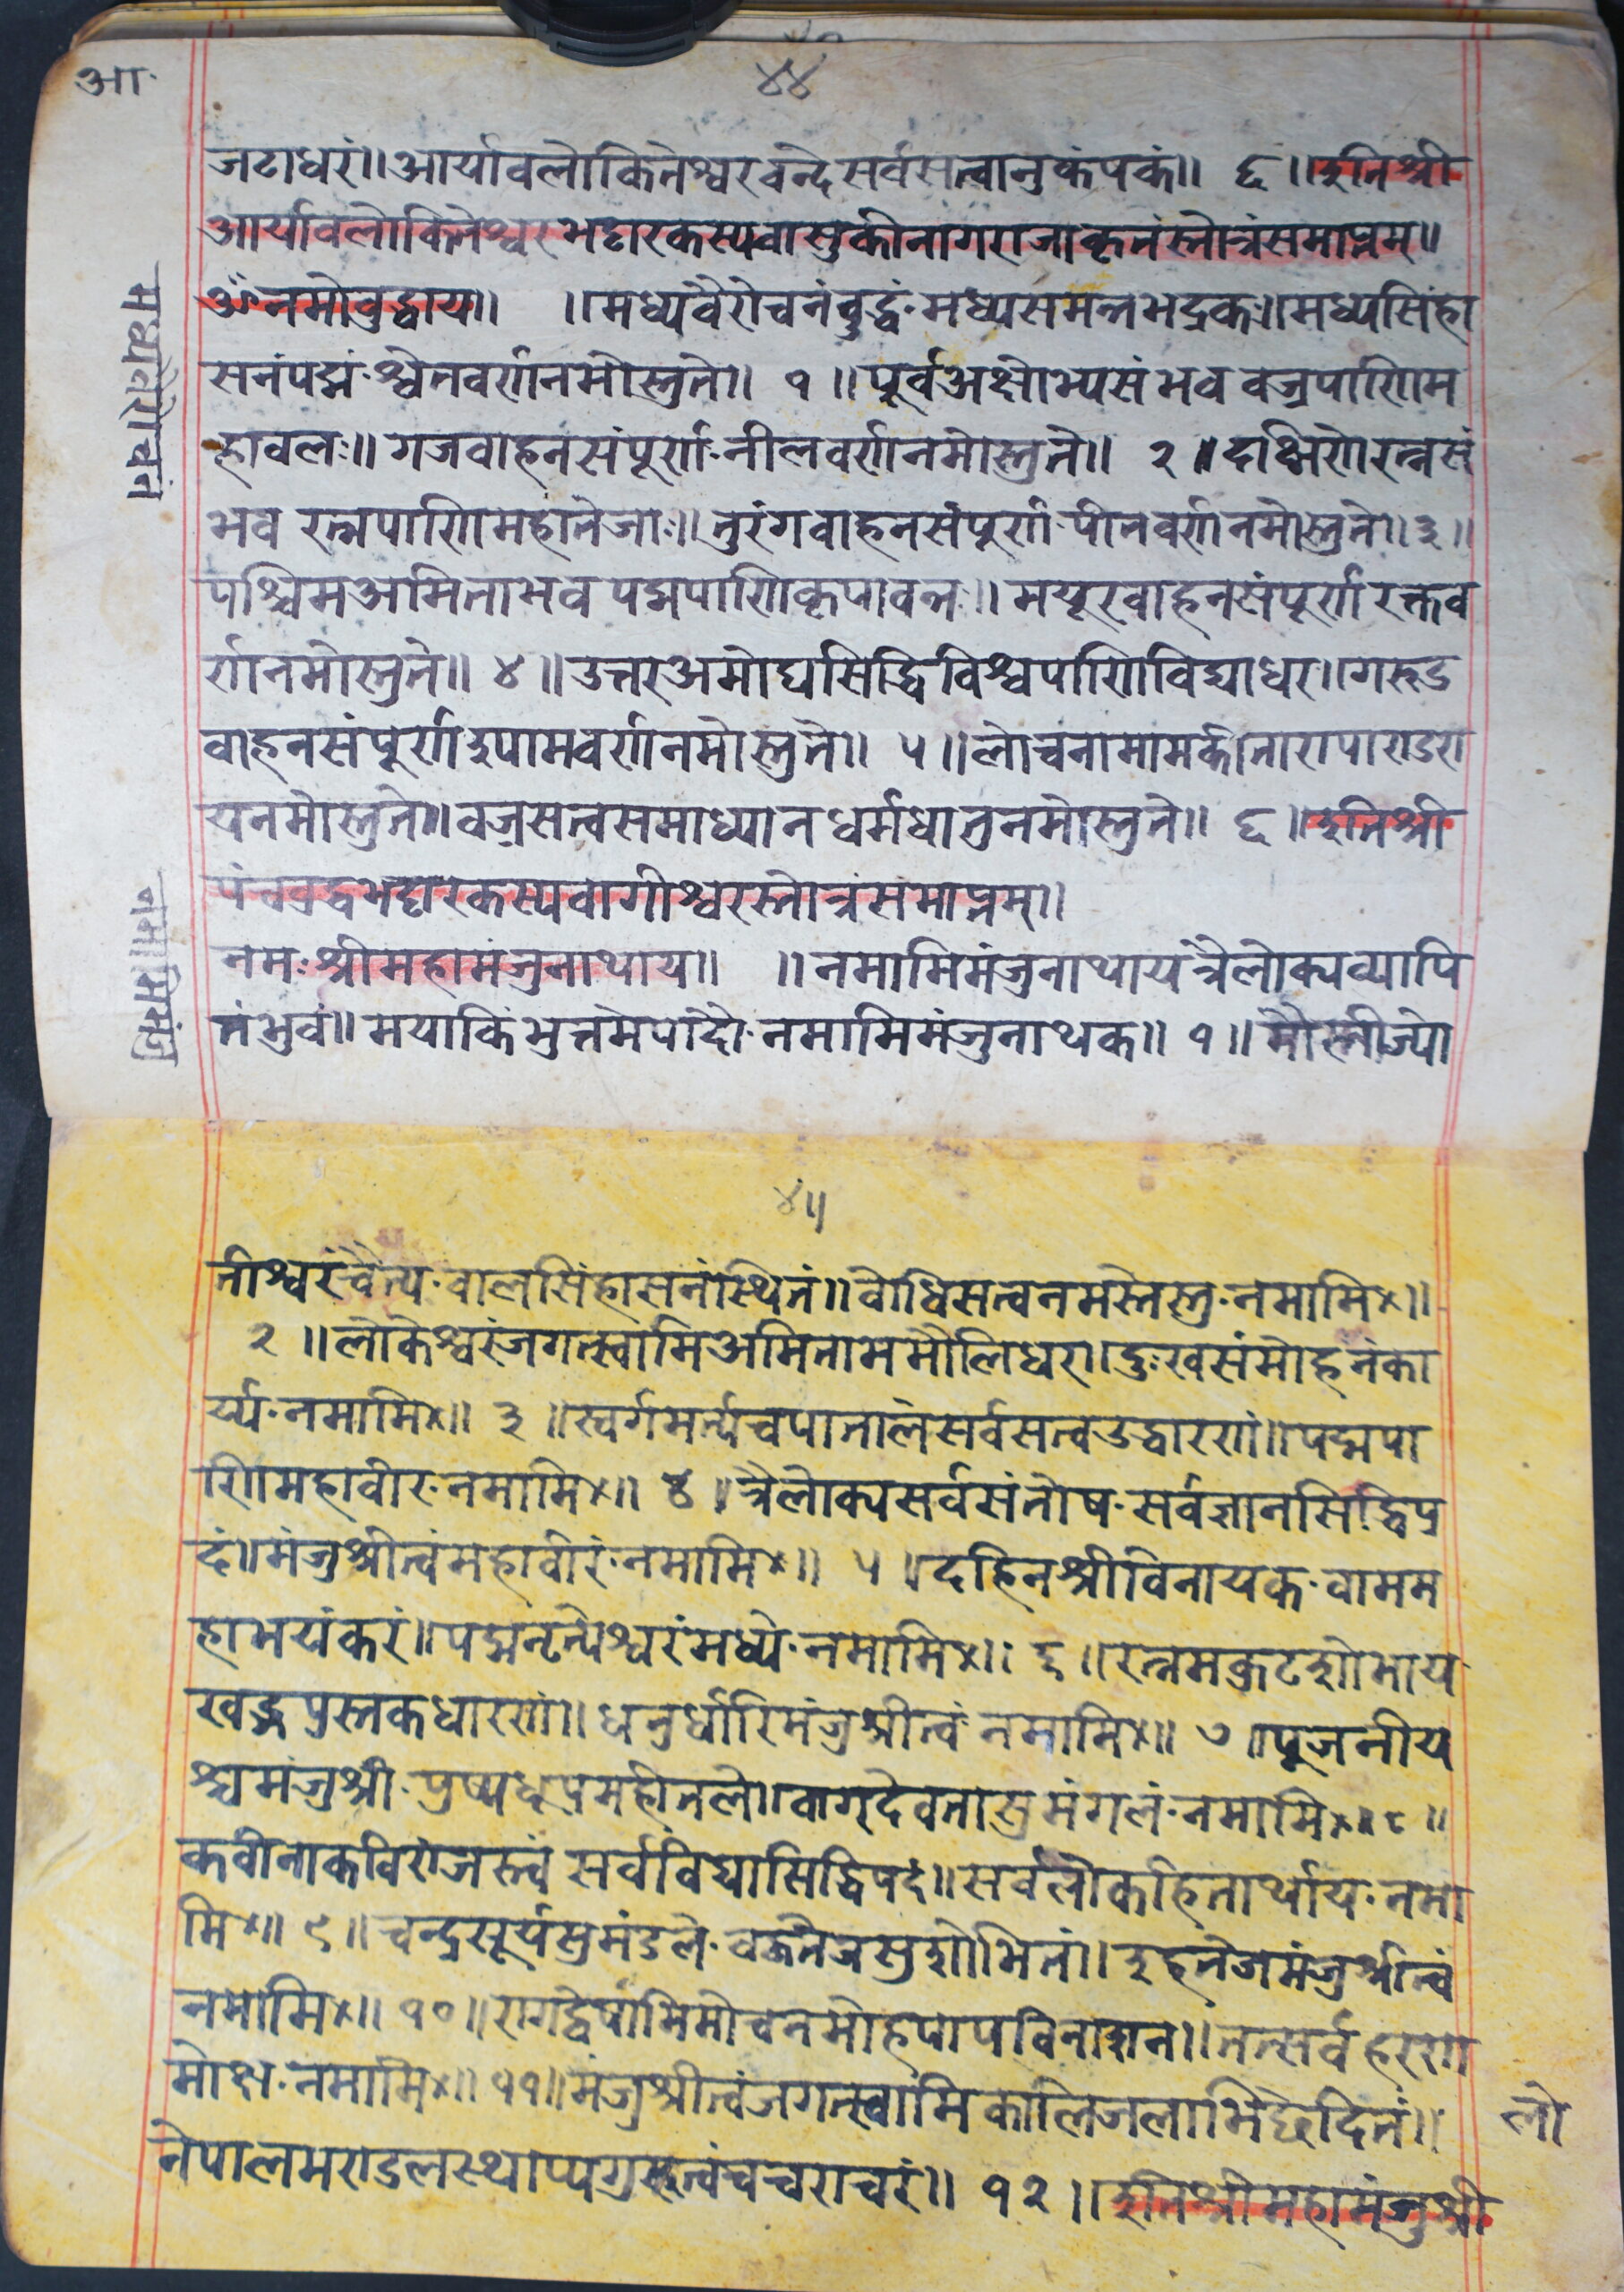 आ.
४४
जटाधरं॥आर्यावलोकितेश्वरवन्देसर्वसत्वानुकंपकं॥ ६ ॥इतिश्री
आर्यावलोकितेश्वरभट्टारकस्यवासुकीनागराजाकृतंस्तोत्रंसमाप्तम्॥
ॐनमोवुद्धाय॥ ॥मध्यवैरोचनंवुद्धं·मध्यसमन्तभद्रकः॥मध्यसिंहा
सनंपद्मं·श्वेतवर्णनमोस्तुते॥ १ ॥पूर्वअक्षोभ्यसंभव वज्रपाणिम
हावलः॥गजवाहनसंपूर्ण·नीलवर्णनमोस्तुते॥ २ ॥दक्षिणेरत्नसं
भव रत्नपाणिमहातेजाः॥तुरंगवाहनसंपूर्ण·पीतवर्णनमोस्तुते॥३॥
पश्चिमअमिताभव पद्मपाणिकृपावन्तः॥मयूरवाहनसंपूर्ण रक्तव
र्णनमोस्तुते॥ ४ ॥उत्तरअमोघसिद्धि विश्वपाणिविद्याधर॥गरूड
वाहनसंपूर्ण इपामवर्णनमोस्तुते॥ ५ ॥लोचनामामकीतारापाण्डरा
यनमोस्तुते॥वज्रसत्वसमाध्यान धर्मधातुनमोस्तुते॥ ६ ॥इतिश्री
पंचवुद्धभट्टारकस्यवागीश्वरस्तोत्रंसमाप्तम्॥
नमःश्रीमहामंजुनाथाय॥ ॥नमामिमंजुनाथायत्रैलोक्यव्यापि
तंभुवं॥मयाकिंभुत्तमेपादौ·नमामिमंजुनाथक॥ १ ॥ मौस्तीज्यो
मध्यवैरोचनं
नमामिमंजु
४५
तीश्वरंचैत्य·वालसिंहासनंस्थितं॥वोधिसत्वनमस्तेस्तु·नमामि×॥
२ ॥लोकेश्वरंजगत्स्वामिअमिताभमौलिधरा॥दुःखसंमोहनंका
र्य्य·नमामि×॥ ३ ॥स्वर्गमर्त्यचपातालंसर्वसत्वउद्धारणं॥पद्मपा
णिमहावीर·नमामि×॥ ४ ॥त्रैलोक्यसर्वसंतोष·सर्वज्ञानसिद्धिप्र
दं॥मंजुश्रीत्वंमहावीरं·नमामि×॥ ५ ॥दहिनश्रीविनायक·वामम
हाभयंकरं॥पद्मनृत्येश्वरंमध्ये·नमामि×॥ ६ ॥रत्नमकुटशोभाय
खड्गपुस्तकधारणं॥धनुर्धारिमंजुश्रीत्वं·नमामि×॥ ७ ॥पूजनीय
श्चमंजुश्री·पुष्पधूपमहीतले॥वाग्देवतासुमंगलं·नमामि×॥८॥
कवीनाकविराजस्त्वं सर्वविद्यासिद्धिपदं॥सर्वलोकहितार्थाय·नमा
मि×॥ ९ ॥चन्द्रसूर्यसुमंडले·वक्तेतेजसुशोभितां॥इहतेजमंजुश्रीत्वं
नमामि×॥ १० ॥रागद्वेषामिमोचनमोहपापविनाशन॥तत्सर्वहरण
मोक्ष·नमामि×॥ ११॥मंजुश्रीत्वंजगत्स्वामिकालिजलाभिछेदितं॥ लो
नेपालमण्डलस्थाप्यगुह्यत्वंचचराचरं॥ १२ ॥इतिश्रीमहामंजुश्री